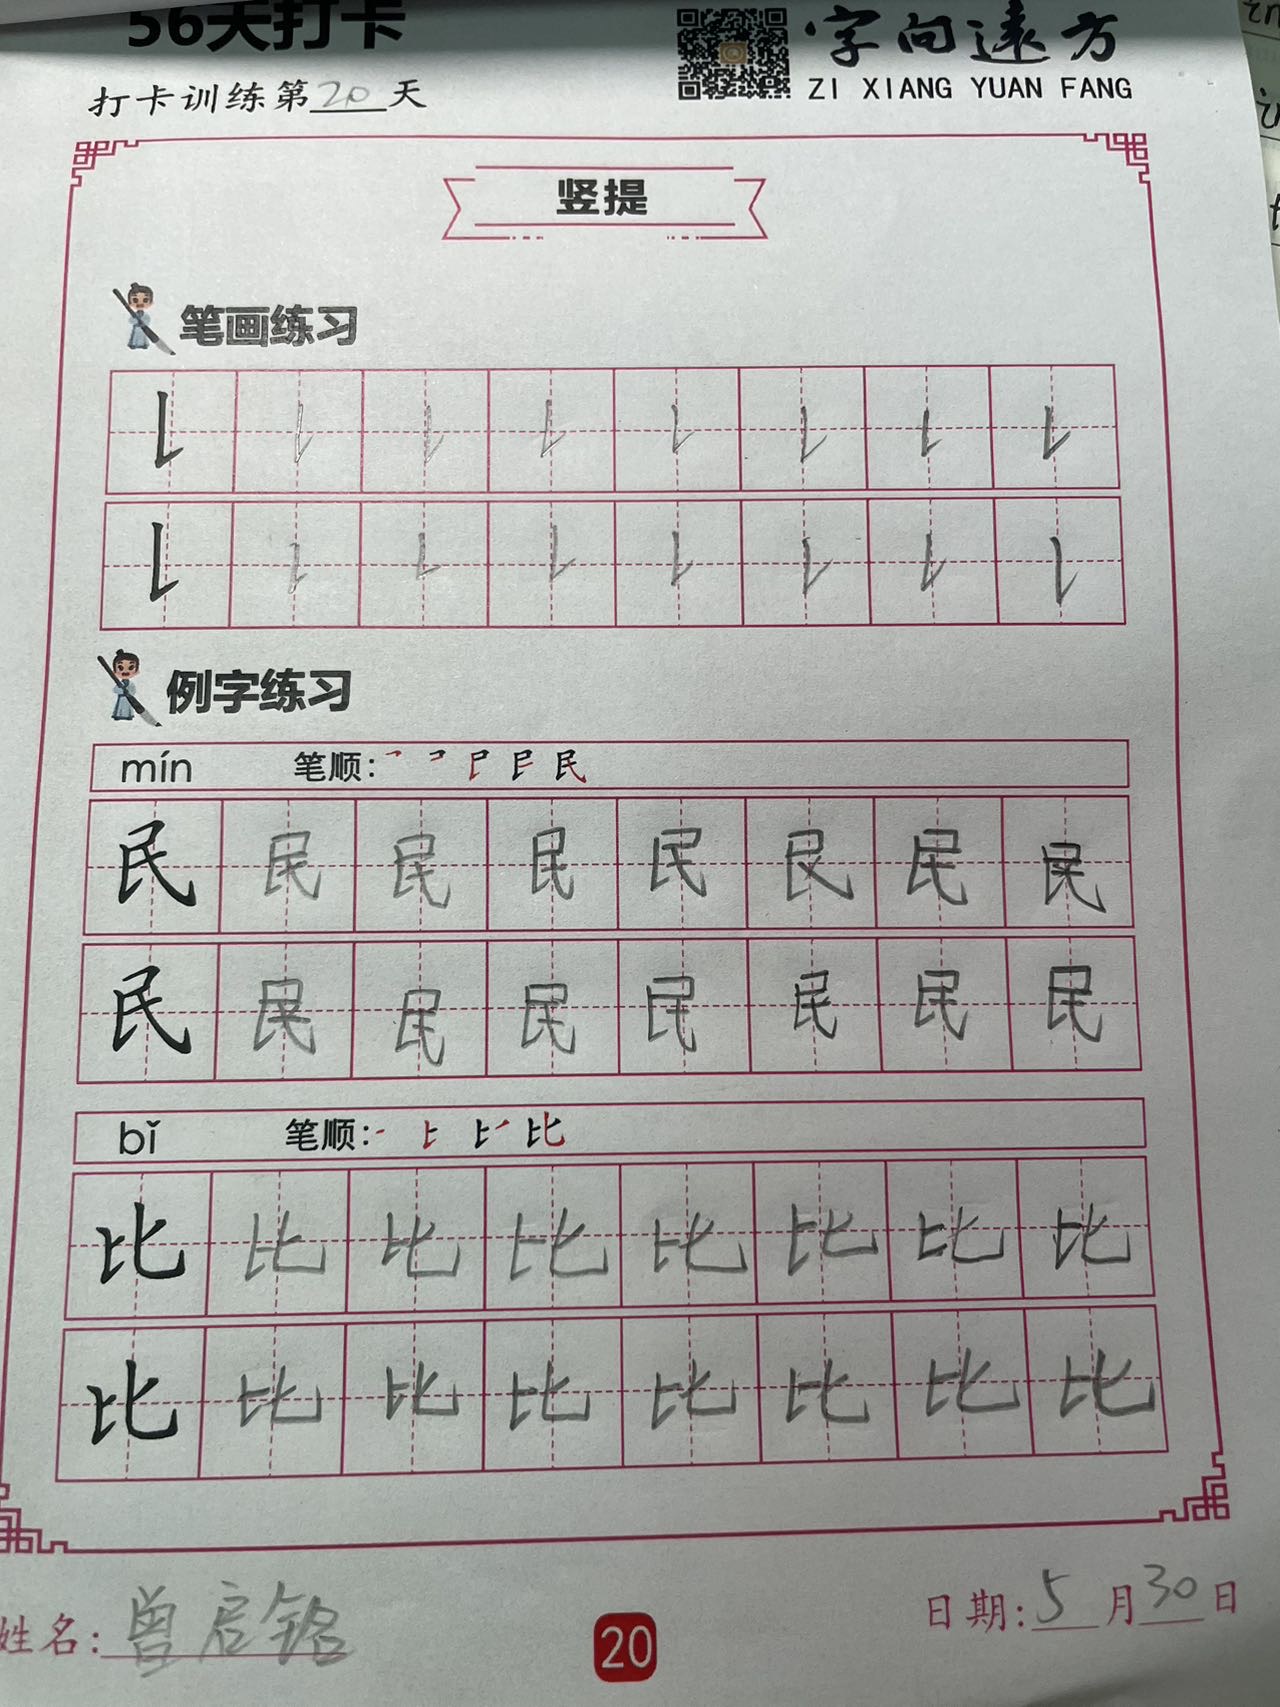 56天打卡
字向远方
ZI XIANG YUAN FANG
打卡训练第20天
竖提
笔画练习
例字练习
mín 笔顺:
民 民 民 民 民 民 民 民
民 民 民 民 民 民 民 民
bǐ 笔顺:
比 比 比 比 比 比 比 比
比 比 比 比 比 比 比 比
姓名:曾启铭
20
日期:5月30日